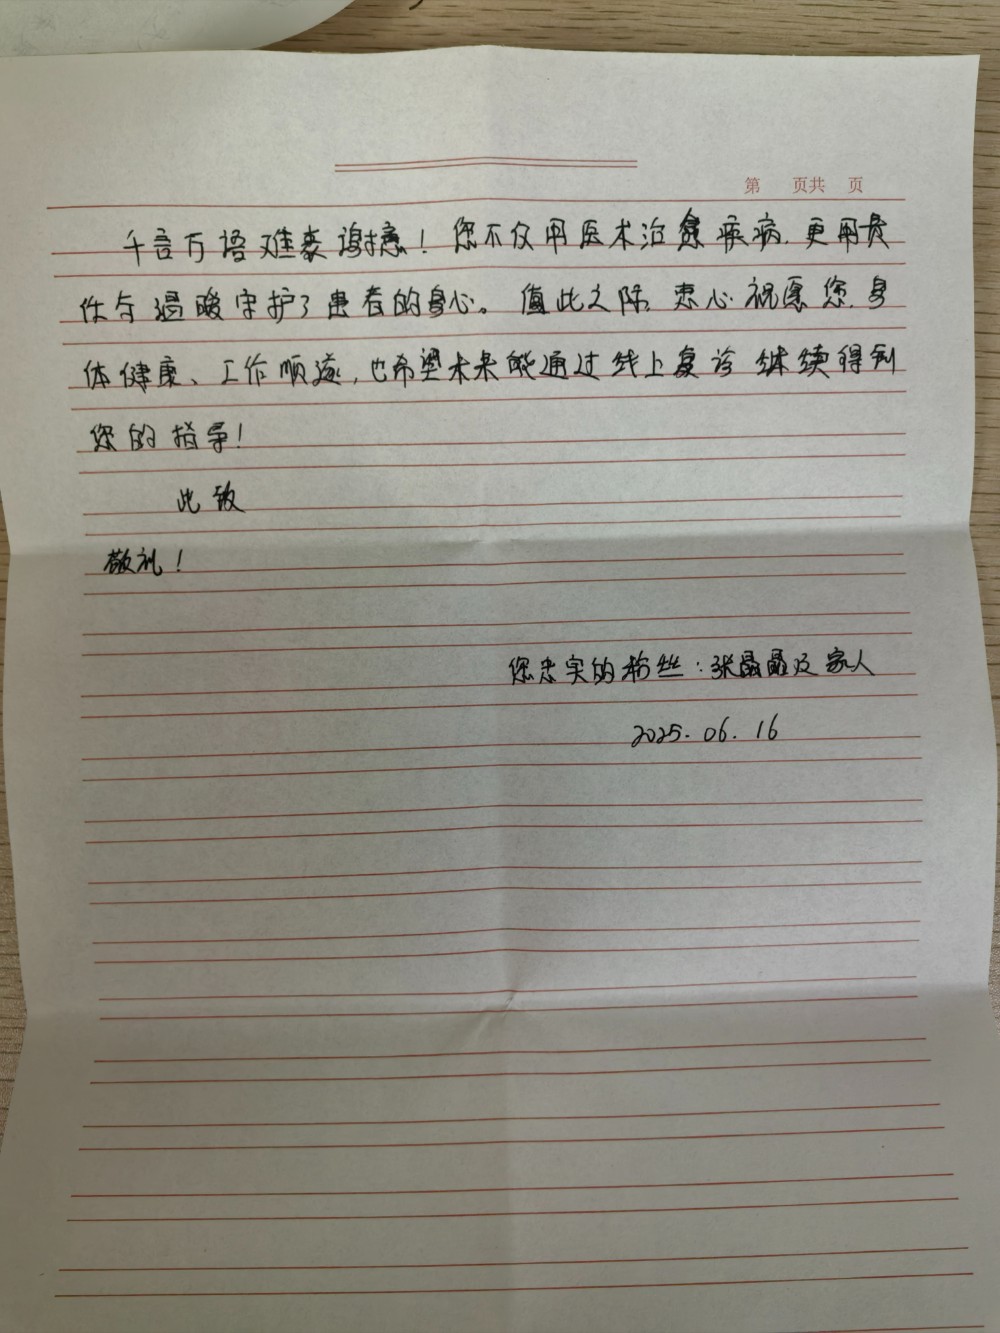 第 页共 页
千言万语难表谢意！您不仅用医术治愈疾病，更用责
任与温暖守护了患者的身心。值此之际，衷心祝愿您，身
体健康、工作顺遂，也希望未来能通过线上复诊继续得到
您的指导！
此致
敬礼！
您忠实的粉丝：张晶晶及家人
2025.06.16